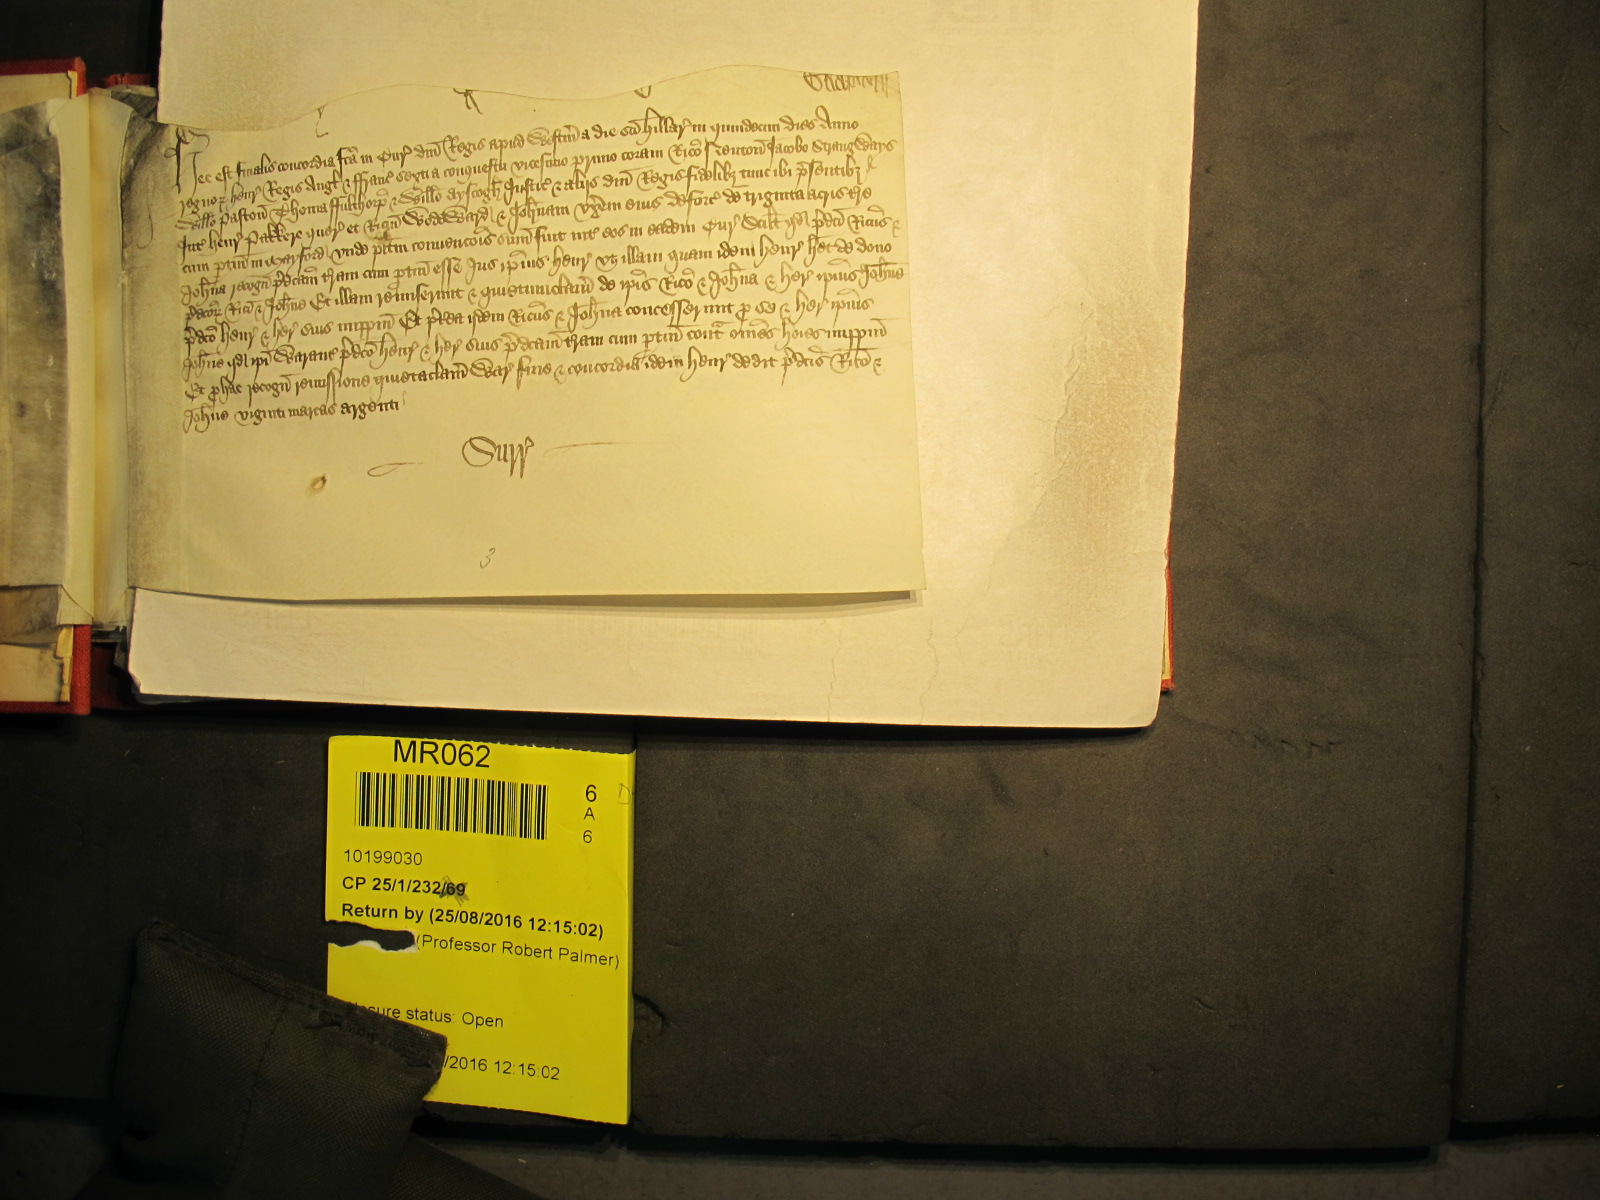 Hec est finalis concordia fcā in Cur dnī Regis apud Westm̄ a die scī hillar̄ in quindecim dies Anno
regnoꝝ henr̄ Regis Angł & ffranc̄ sexti a conquestu vicesimo primo coram Ric̄o Neuton̄ Jacobo Strangways
Wiłło Paston̄ Thoma ffulthorp & Wiłło Ayscogh Justic̄ & alijs dnī Regis fidelibȝ tunc ibi p̄sentibȝ
Int̄ henr̄ Pakkere quer̄ et Ric̄m Wodeward & Joh̄nam vx̄em eius deforc̄ de triginta acris t̄re
cum ptin̄ in Unde plītm convencōis sum̄ fuit int̄ eos in eadem Cur̄ Scilt̄ qd p̄dc̄i Ric̄us &
Joh̄na recogn̄ p̄dcām t̄ram cum ptin̄ esse Jus ip̄ius henr̄ vt illam quam idem henr̄ h̄et de dono
p̄dc̄oꝝ Ric̄i & Joh̄ne Et illam remiserunt & quietumclam̄ de ip̄is Ric̄o & Joh̄na & her̄ ip̄ius Joh̄ne
p̄dc̄o henr̄ & her̄ eius imppm̄ Et p̄t̄ea ijdem Ric̄us & Joh̄na concesserunt p̱ se & her̄ ip̄ius
Joh̄ne qd ip̄i Warant̄ p̄dc̄o henr̄ & her̄ eius p̄dcām t̄ram cum ptin̄ cont̄ om̄es ho̅i̅es imppm̄
Et p̱ hac recogn̄ remissione quietaclam̄ War̄ fine & concordia idem henr̄ dedit p̄dc̄is Ric̄o &
Joh̄ne viginti marcas argenti
Surr̄
3
MR062
6
A
6
10199030
CP 25/1/232/69
Return by (25/08/2016 12:15:02)
(Professor Robert Palmer)
status: Open
/2016 12:15:02